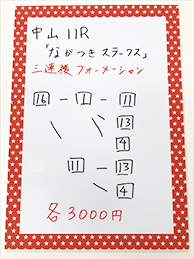 中山 11R
「ながつきステークス」
三連複フォーメーション
16 － 1 － 11
13
4
11 － 13
4
各3000円